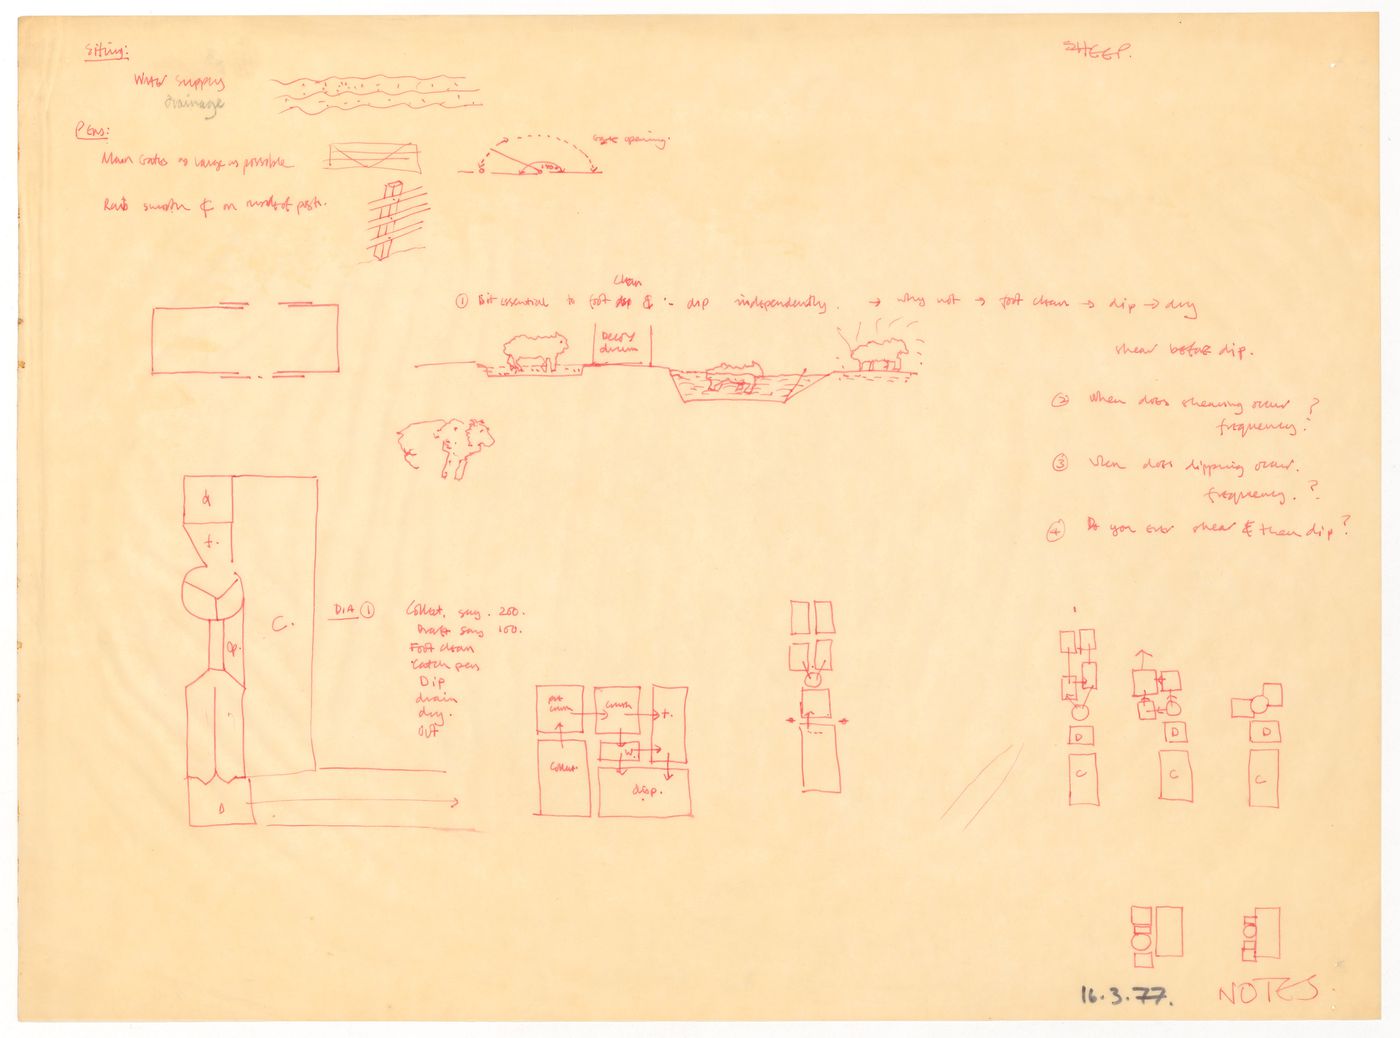 SHEEP.
Siting:
Water supply
Drainage
Pens:
Main Gates as large as possible
gate opening.
Rails smooth & on inside of posts.
clean
① Bit essential to foot & dip independently. → why not → foot clean → dip → dry
Decoy
shear before dip.
② When does shearing occur ?
frequency?
③ when does dipping occur.
frequency. ?
④ Do you ever shear & then dip?
d
t.
C.
cp.
D
DIA ①
Collect. say. 200.
Draft say 100.
Foot clean
Catch pen
Dip
drain
dry.
out
crush
crush
t.
W.
Collect.
disp.
D
D
D
C
C
C
16.3.77. NOTES.